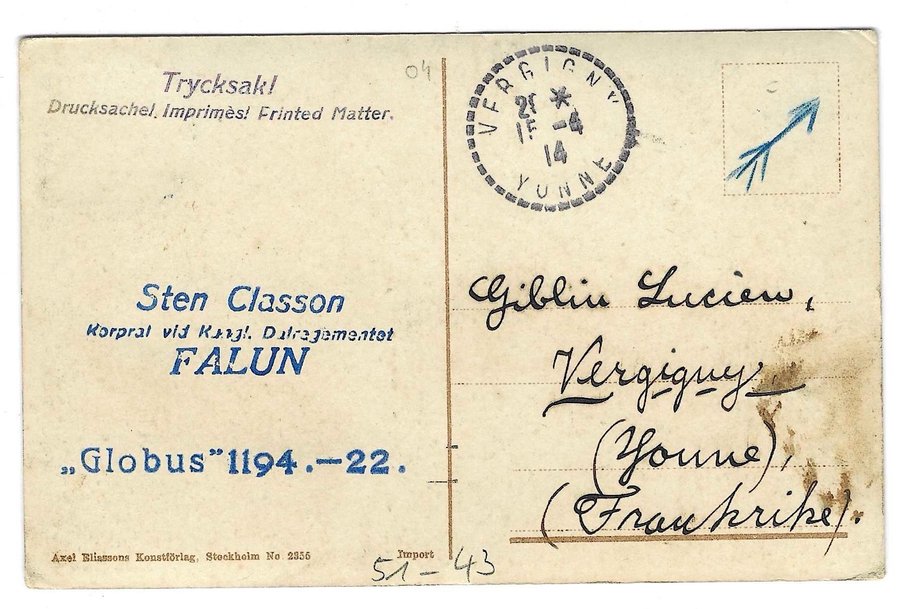 Trycksak!
Drucksache! Imprimès! Printed Matter.
04
VERGIGNY
*
-4
14
YONNE
Sten Classon
Korpral vid Kungl. Dalregementet
FALUN
„Globus” 1194.—22.
Giblin Lucien,
Vergigny
(Yonne),
(Frankrike).
Axel Eliassons Konstförlag, Stockholm No 2356
Import
51-43